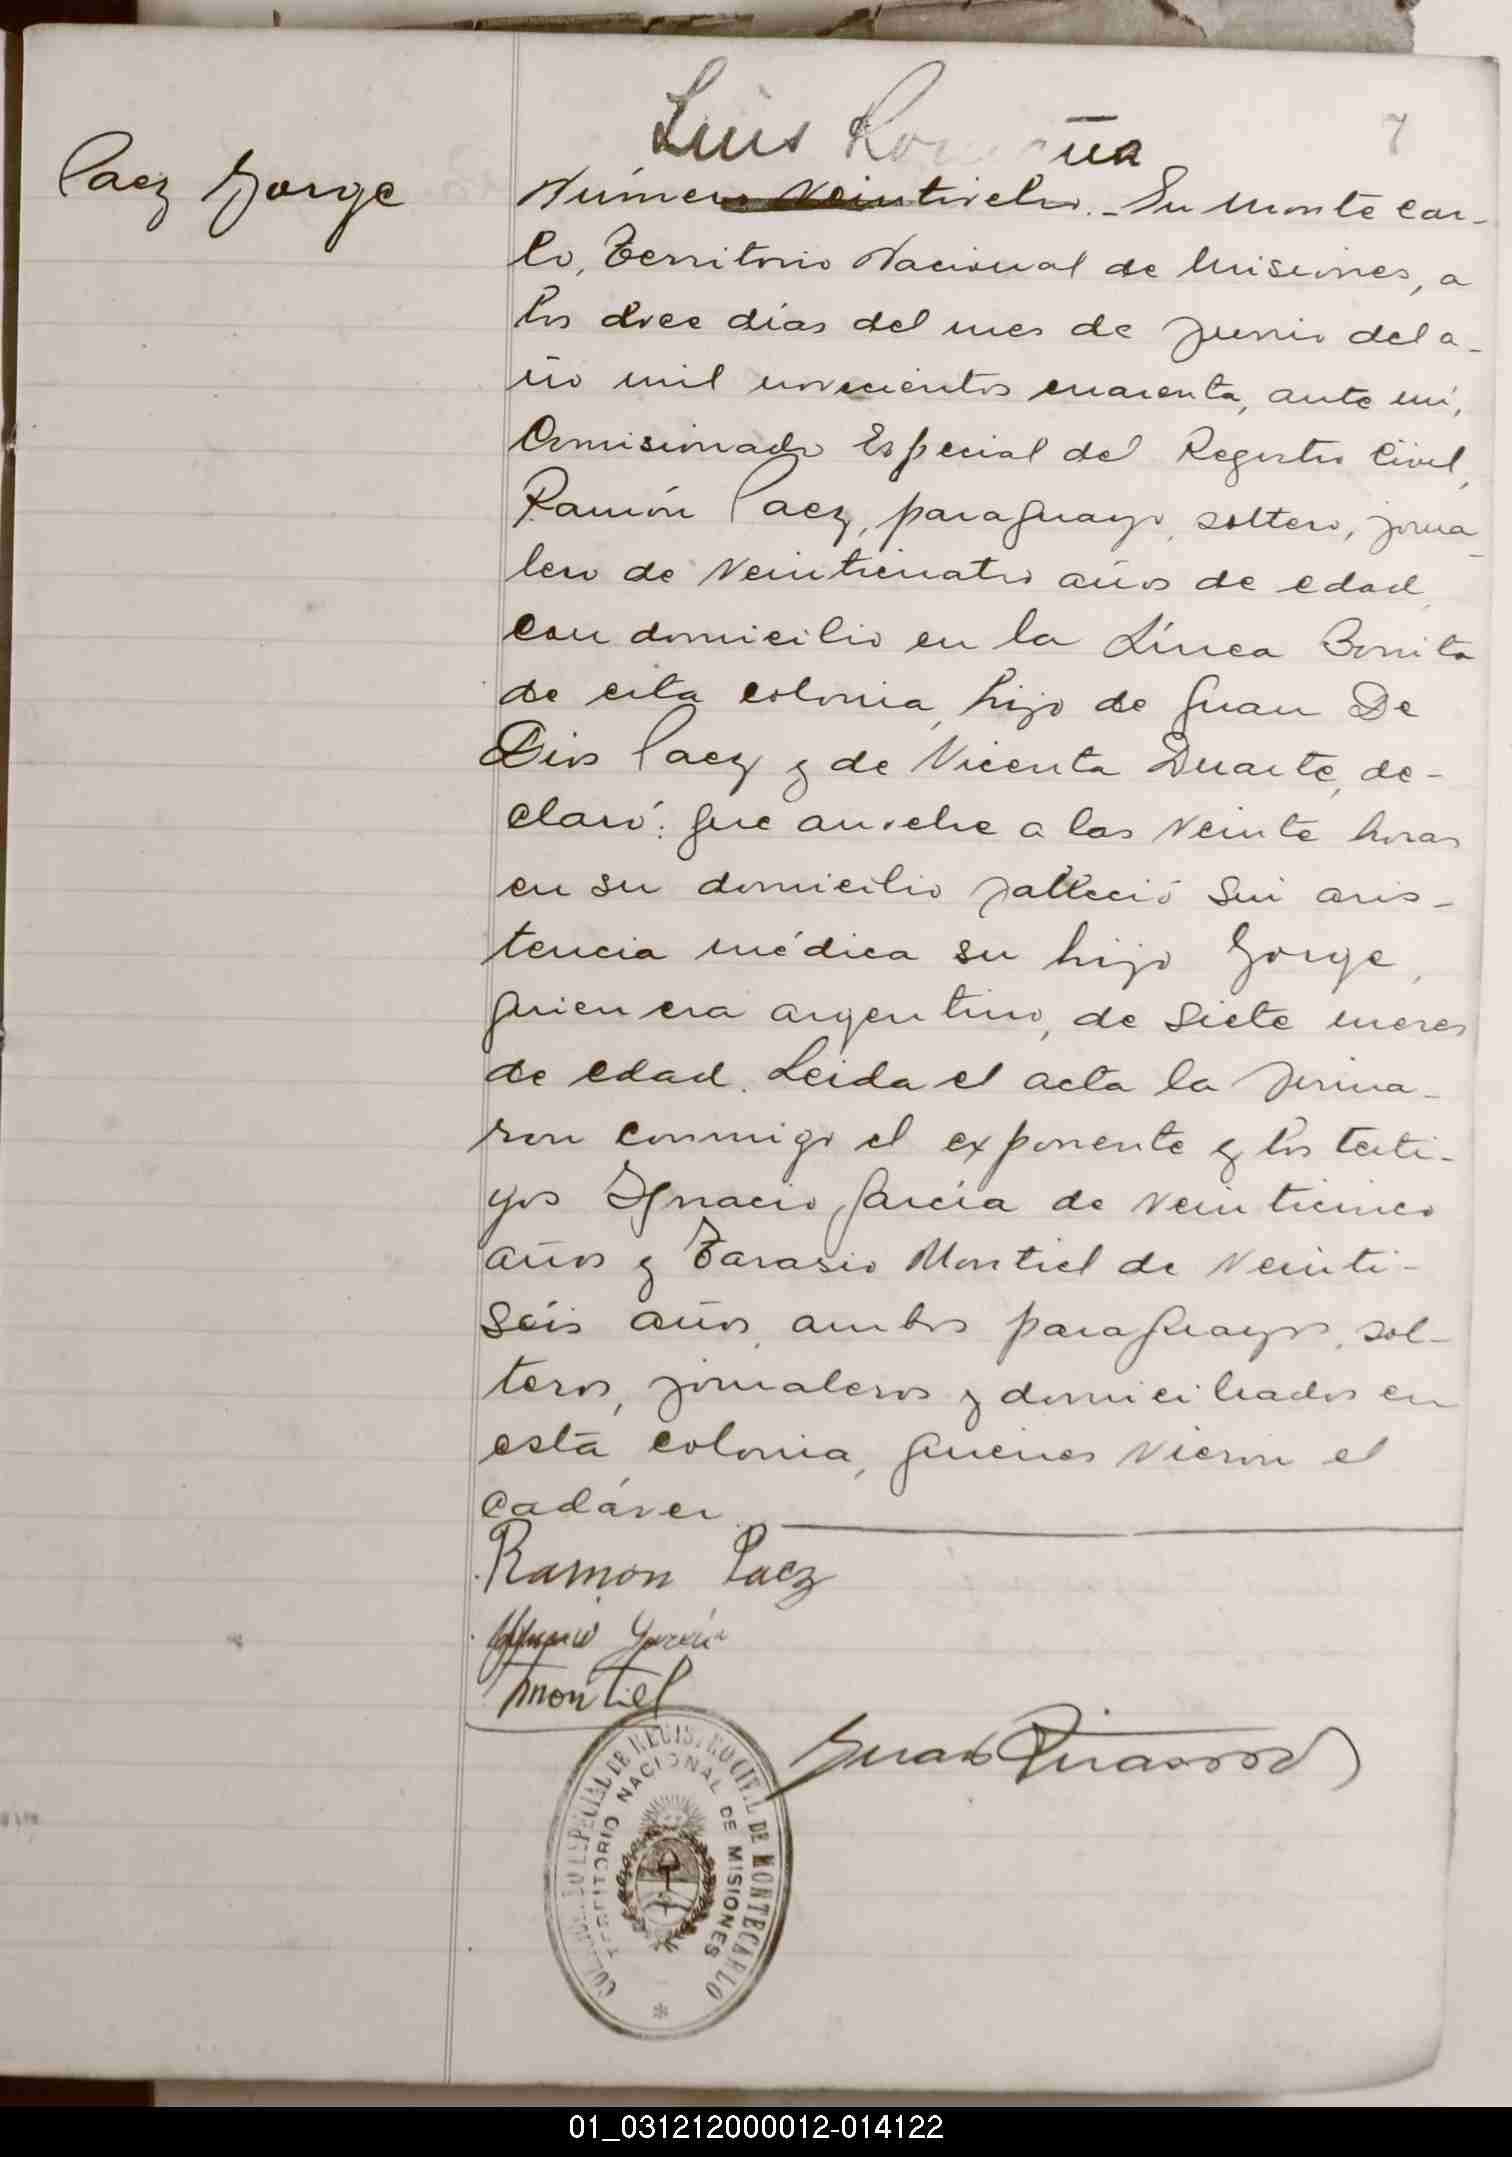 7
Luis
Paez Jorge
Número Veintiocho. - En Monte Car-
lo, Territorio Nacional de Misiones, a
los doce días del mes de Junio del a-
ño mil novecientos cuarenta, ante mí,
Comisionado Especial del Registro Civil,
Ramón Paez, paraguayo, soltero, jorna-
lero de veinticuatro años de edad,
con domicilio en la Línea Bonita
de esta colonia, hijo de Juan De
Dios Paez y de Vicenta Duarte, de-
claró: que anoche a las veinte horas
en su domicilio falleció sin asis-
tencia médica su hijo Jorge,
quien era argentino, de siete meses
de edad. Leida el acta la firma-
ron conmigo el exponente y los testi-
gos Ignacio García de veinticinco
años y Tarasio Montiel de veinti-
séis años, ambos paraguayos, sol-
teros, jornaleros y domiciliados en
esta colonia, quienes vieron el
cadáver.
Ramon Paez
Ignacio García
Montiel
Juan
COMISIONADO ESPECIAL DE REGISTRO CIVIL DE MONTECARLO
TERRITORIO NACIONAL DE MISIONES
01_031212000012-014122